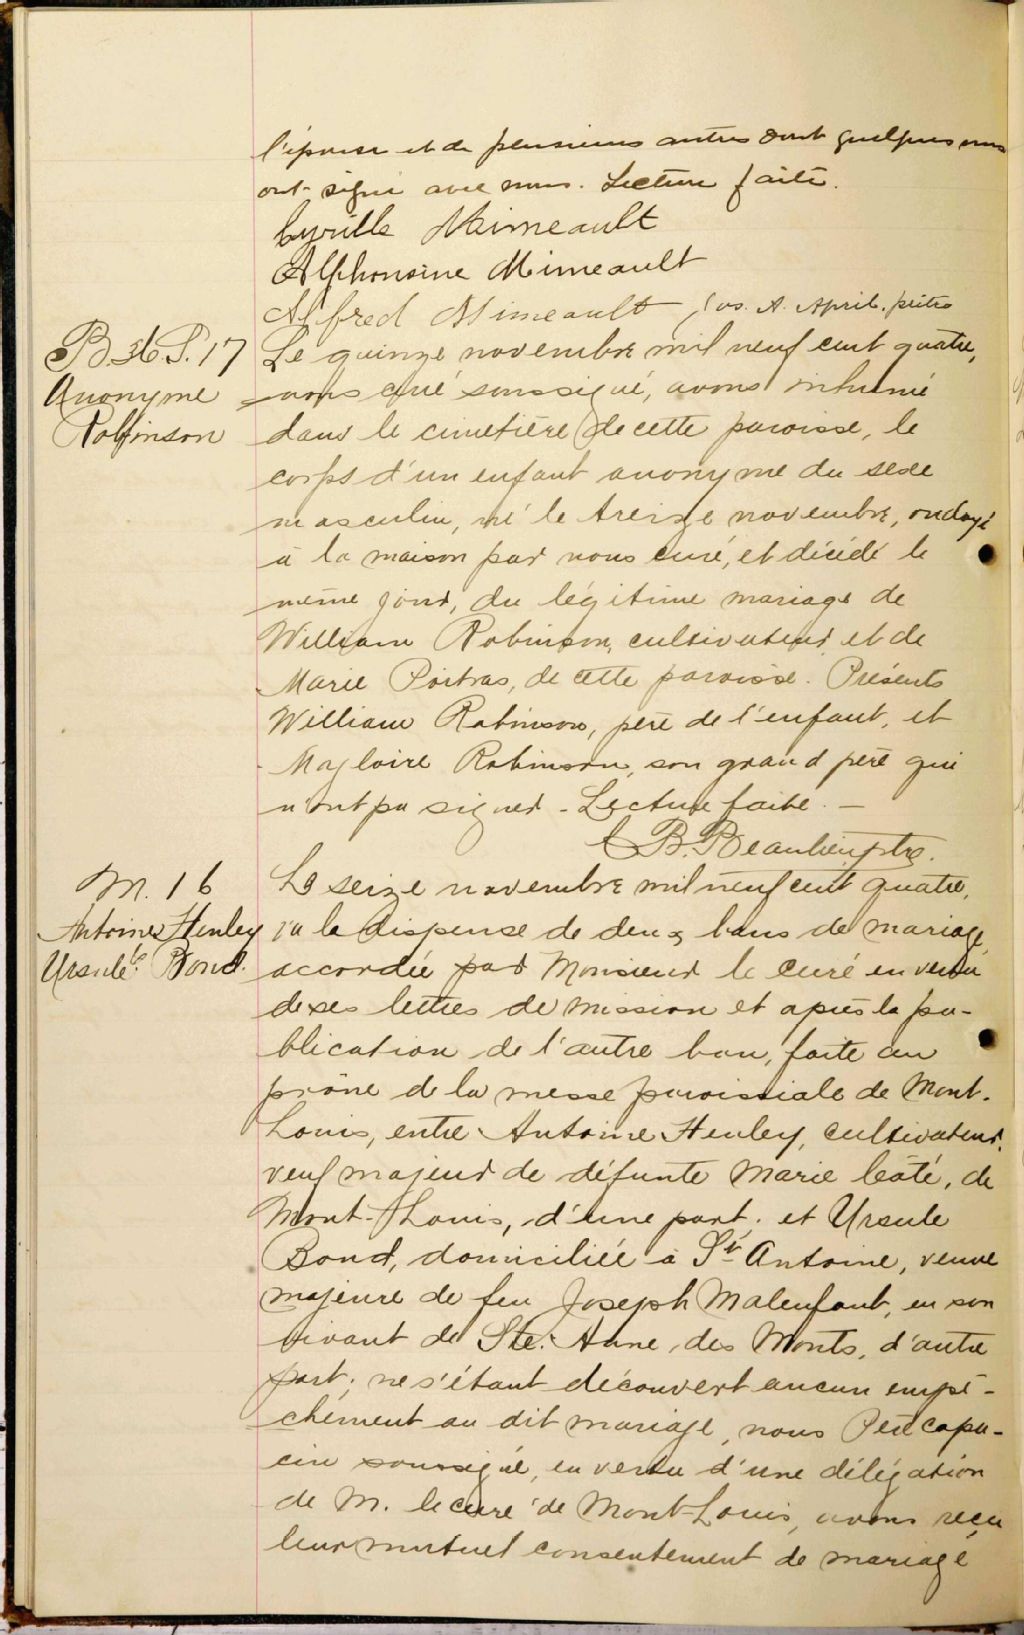 l'épouse et de plusieurs autres dont quelques uns
ont signé avec nous. Lecture faite.
Cyrille Mimeault
Alphonsine Mimeault
Alfred Mimeault, Jos. A. April. ptre
B. et S. 17
Anonyme
Robinson
Le quinze novembre mil neuf cent quatre,
nous curé soussigné, avons inhumé
dans le cimetière de cette paroisse, le
corps d'un enfant anonyme du sexe
masculin, né le treize novembre, ondoyé
à la maison par nous curé, et décédé le
même jour, du légitime mariage de
William Robinson, cultivateur et de
Marie Poitras, de cette paroisse. Présents
William Robinson, père de l'enfant, et
Magloire Robinson, son grand père qui
n'ont pu signer - Lecture faite. -
B. Beaulieu, ptre.
M. 16
Antoine Henley
Ursule Bond.
Le seize novembre mil neuf cent quatre,
vu la dispense de deux bans de mariage,
accordée par Monsieur le curé en vertu
de ses lettres de mission et après la pu-
blication de l'autre ban, faite au
prône de la messe paroissiale de Mont-
Louis, entre Antoine Henley, cultivateur,
veuf majeur de défunte Marie Coté, de
Mont-Louis, d'une part. et Ursule
Bond, domiciliée à St Antoine, veuve
majeure de feu Joseph Malenfant, en son
vivant de Ste. Anne des Monts, d'autre
part; ne s'étant découvert aucun empê-
chement au dit mariage, nous Père capu-
cin soussigné, en vertu d'une délégation
de M. le curé de Mont-Louis, avons reçu
leur mutuel consentement de mariage